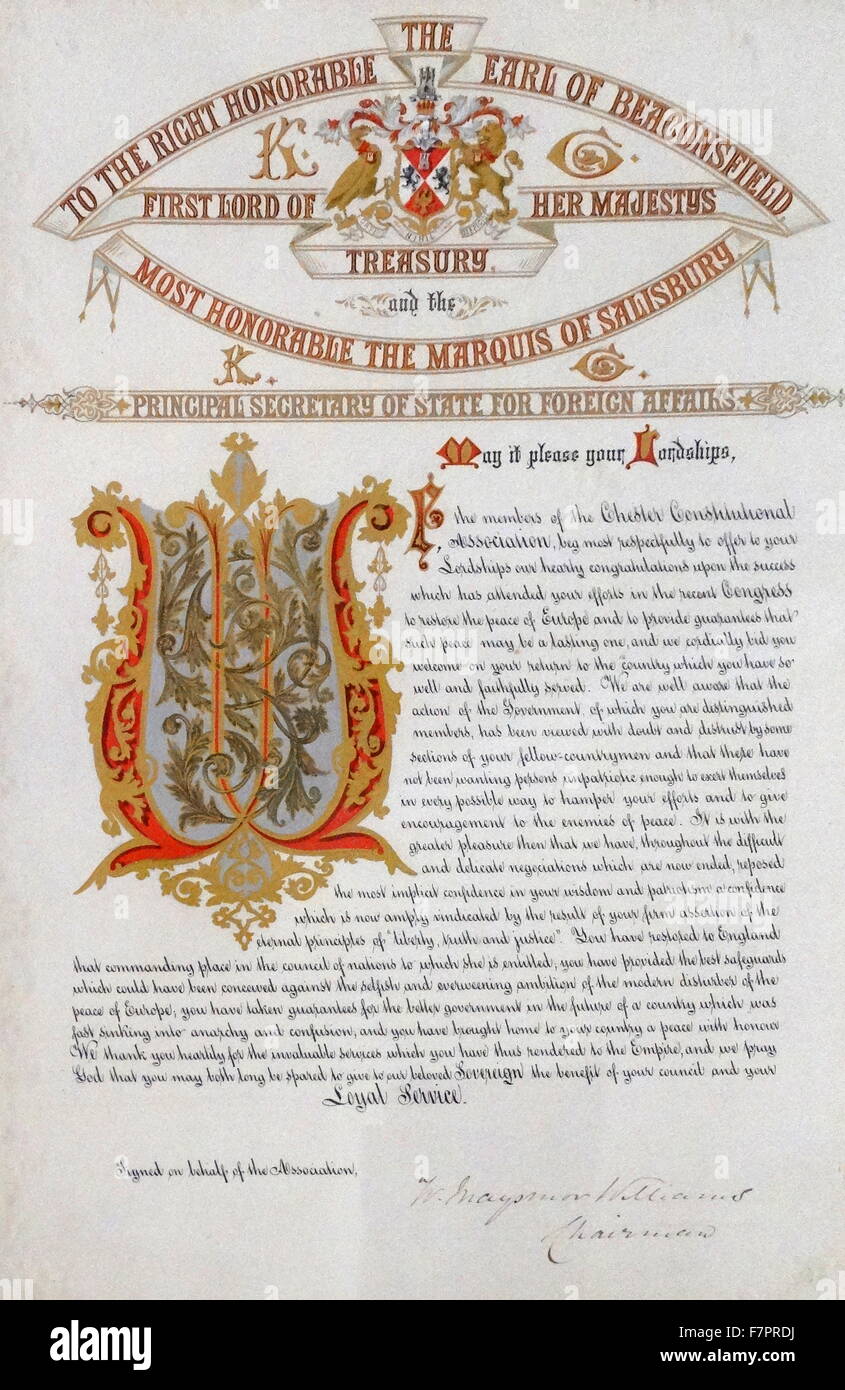 THE
TO THE RIGHT HONORABLE EARL OF BEACONSFIELD.
K. G.
FIRST LORD OF HER MAJESTYS
TREASURY.
and the
MOST HONORABLE THE MARQUIS OF SALISBURY
K. G.
PRINCIPAL SECRETARY OF STATE FOR FOREIGN AFFAIRS.
May it please your Lordships,
WE, the members of the Chester Constitutional
Association, beg most respectfully to offer to your
Lordships our hearty congratulations upon the success
which has attended your efforts in the recent Congress
to restore the peace of Europe and to provide guarantees that
such peace may be a lasting one, and we cordially bid you
welcome on your return to the country which you have so
well and faithfully served. We are well aware that the
action of the Government, of which you are distinguished
members, has been viewed with doubt and distrust by some
sections of your fellow-countrymen and that there have
not been wanting persons unpatriotic enough to exert themselves
in every possible way to hamper your efforts and to give
encouragement to the enemies of peace. It is with the
greater pleasure then that we have, throughout the difficult
and delicate negociations which are now ended, reposed
the most implicit confidence in your wisdom and patriotism a confidence
which is now amply vindicated by the result of your firm assertion of the
eternal principles of "liberty, truth and justice". You have restored to England
that commanding place in the council of nations to which she is entitled; you have provided the best safeguards
which could have been conceived against the selfish and overweening ambition of the modern disturber of the
peace of Europe; you have taken guarantees for the better government in the future of a country which was
fast sinking into anarchy and confusion; and you have brought home to your country a peace with honour
We thank you heartily for the invaluable services which you have thus rendered to the Empire, and we pray
God that you may both long be spared to give to our beloved Sovereign the benefit of your council and your
Loyal Service.
Signed on behalf of the Association,
W. Maysmor Williams
Chairman
alamy stock photo
F7PRDJ
www.alamy.com